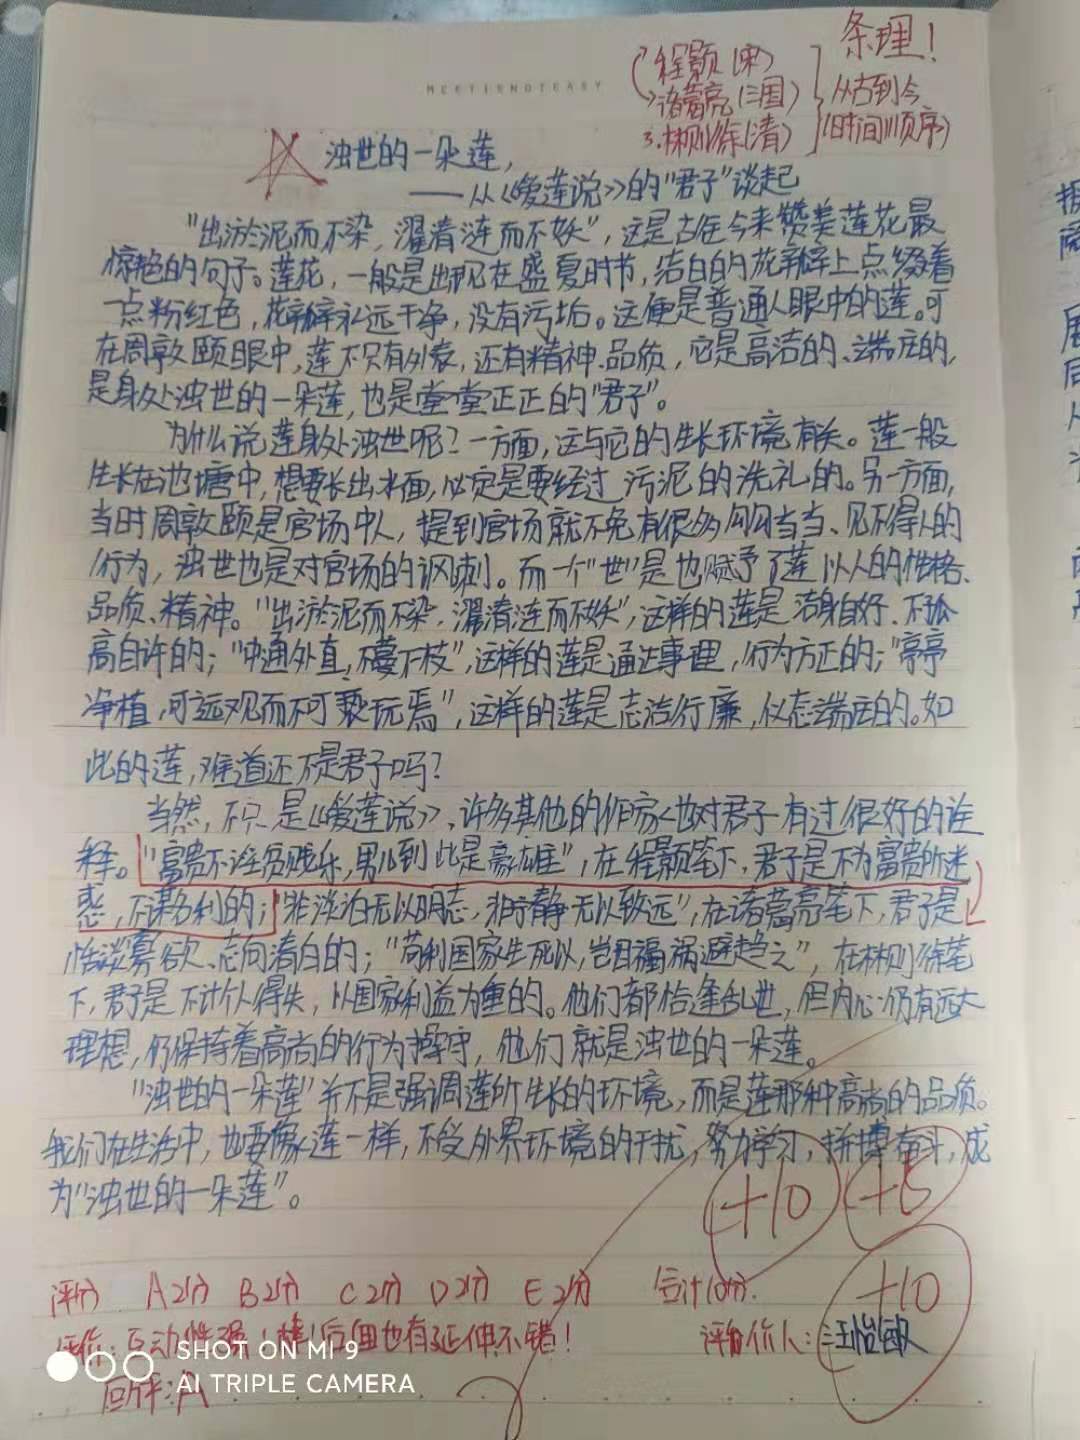 条理!
程颢(宋)
诸葛亮(三国)
从古到今
3.林则徐(清)
(时间顺序)
NEETIESNOTEASY
浊世的一朵莲,
——从《爱莲说》的"君子"谈起
"出淤泥而不染,濯清涟而不妖",这是古往今来赞美莲花最
惊艳的句子。莲花,一般是出现在盛夏时节,洁白的花瓣上点缀着
一点粉红色,花瓣永远干净,没有污垢。这便是普通人眼中的莲。可
在周敦颐眼中,莲不只有外表,还有精神、品质,它是高洁的、端庄的,
是身处浊世的一朵莲,也是堂堂正正的"君子"。
为什么说莲身处浊世呢?一方面,这与它的生长环境有关。莲一般
生长在池塘中,想要长出水面,必定是要经过污泥的洗礼的。另一方面,
当时周敦颐是官场中人,提到官场就不免有很多勾勾当当、见不得人的
行为,浊世也是对官场的讽刺。而一个"世"是也赋予了莲以人的性格、
品质、精神。"出淤泥而不染,濯清涟而不妖",这样的莲是洁身自好、不孤
高自许的;"中通外直,不蔓不枝",这样的莲是通达事理,行为方正的;"亭亭
净植,可远观而不可亵玩焉",这样的莲是志洁行廉,仪态端庄的。如
此的莲,难道还不是君子吗?
当然,不只是《爱莲说》、许多其他的作家也对君子有过很好的诠
释。"富贵不淫贫贱乐,男儿到此是豪雄",在程颢笔下,君子是不为富贵所迷
惑,不谋名利的;"非淡泊无以明志,非宁静无以致远",在诸葛亮笔下,君子是
恬淡寡欲、志向清白的;"苟利国家生死以,岂因福祸避趋之",在林则徐笔
下,君子是不计个人得失,以国家利益为重的。他们都恰逢乱世,但内心仍有远大
理想,仍保持着高尚的行为操守,他们就是浊世的一朵莲。
"浊世的一朵莲"并不是强调莲所生长的环境,而是莲那种高尚的品质。
我们在生活中,也要像莲一样,不受外界环境的干扰,努力学习,拼搏奋斗,成
为"浊世的一朵莲"。
+10 +5
评分 A 2分 B 2分 C 2分 D 2分 E 2分 合计10分.
+10
评价:互动性强!后面也有延伸不错! 评价人:汪怡敏
SHOT ON MI 9
AI TRIPLE CAMERA
回评:A